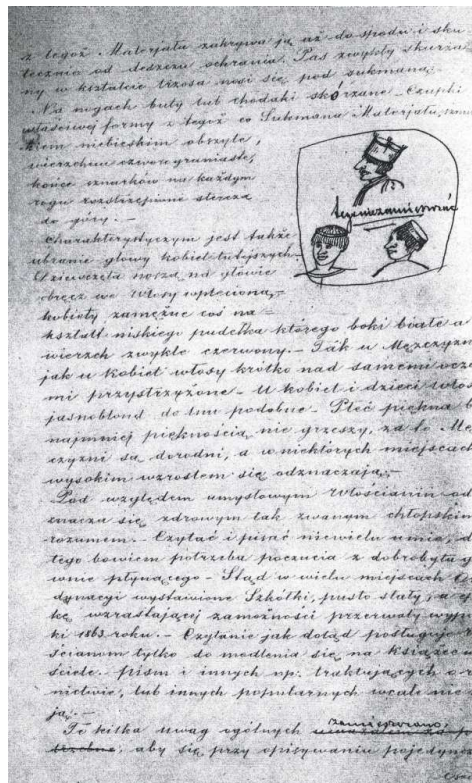 z tegoż Materjału zakrywa ją aż do spodu i sku-
tecznie od deszczu ochrania. Pas zwykły skórza-
ny w kształcie trzosa nosi się pod sukmaną.-
Na nogach buty lub chodaki skórzane. Czapki
właściwej formy z tegoż co Sukmana Materjału,
niebieskim obszyte,
wierzchem czworograniaste,
końce sznurków na każdym
rogu rozstrzępione stercza
do góry.-
Charakterystycznym jest także
ubranie głowy kobiet tutejszych.
Dziewczęta noszą na głowie
obręcz we włosy wplecioną,
kobiety zamężne coś na=
kształt niskiego pudełka którego boki białe a
wierzch zwykle czerwony.- Tak u Mężczyzn
jak u Kobiet włosy krótko nad samemi ocza
mi przystrzyżone.- U kobiet i dzieci włos
jasnoblond do lnu podobne.- Płeć piękna b
najmniej pięknością nie grzeszy, za to Mę
czyzni są dorodni, a w niektórych miejscach
wysokim wzrostem się odznaczają.-
Pod względem umysłowym włościanin od
znacza się zdrowym tak zwanym chłopskim
rozumem.- Czytać i pisać niewielu umie, d
tego bowiem potrzeba poczucia z dobrobytu g
wnie płynącego - Stąd w wielu miejscach O
dynacyi wystawione Szkółki, pusto stały, a
kę wzrastającej zamożności przerwały wyp
ki 1863 roku.- Czytanie jak dotąd posługuje
ścianom tylko do modlenia się na książce w
ściele. pism i innych np. traktujących o r
nictwie, lub innych popularnych wcale nie
ją.-
To kilka uwag ogólnych
aby się przy opisywaniu pojedync